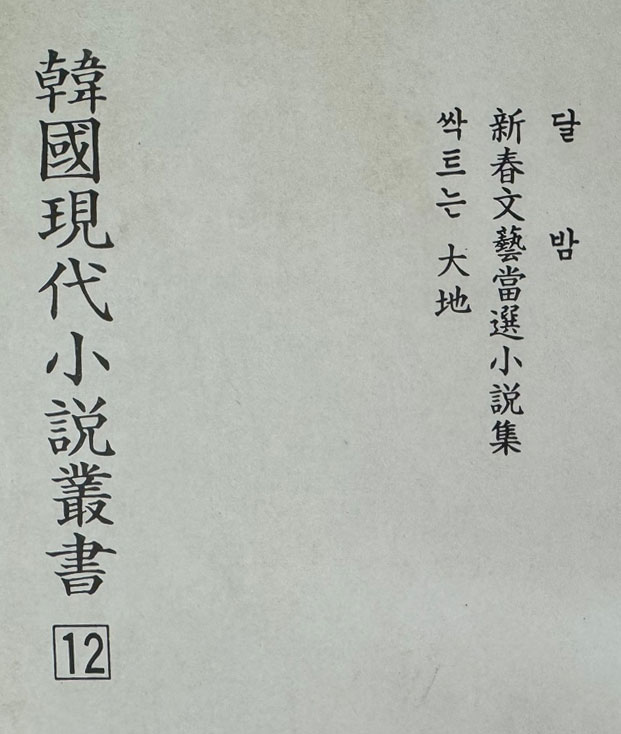 달밤
新春文藝當選小說集
싹트는 大地
韓國現代小說叢書
12